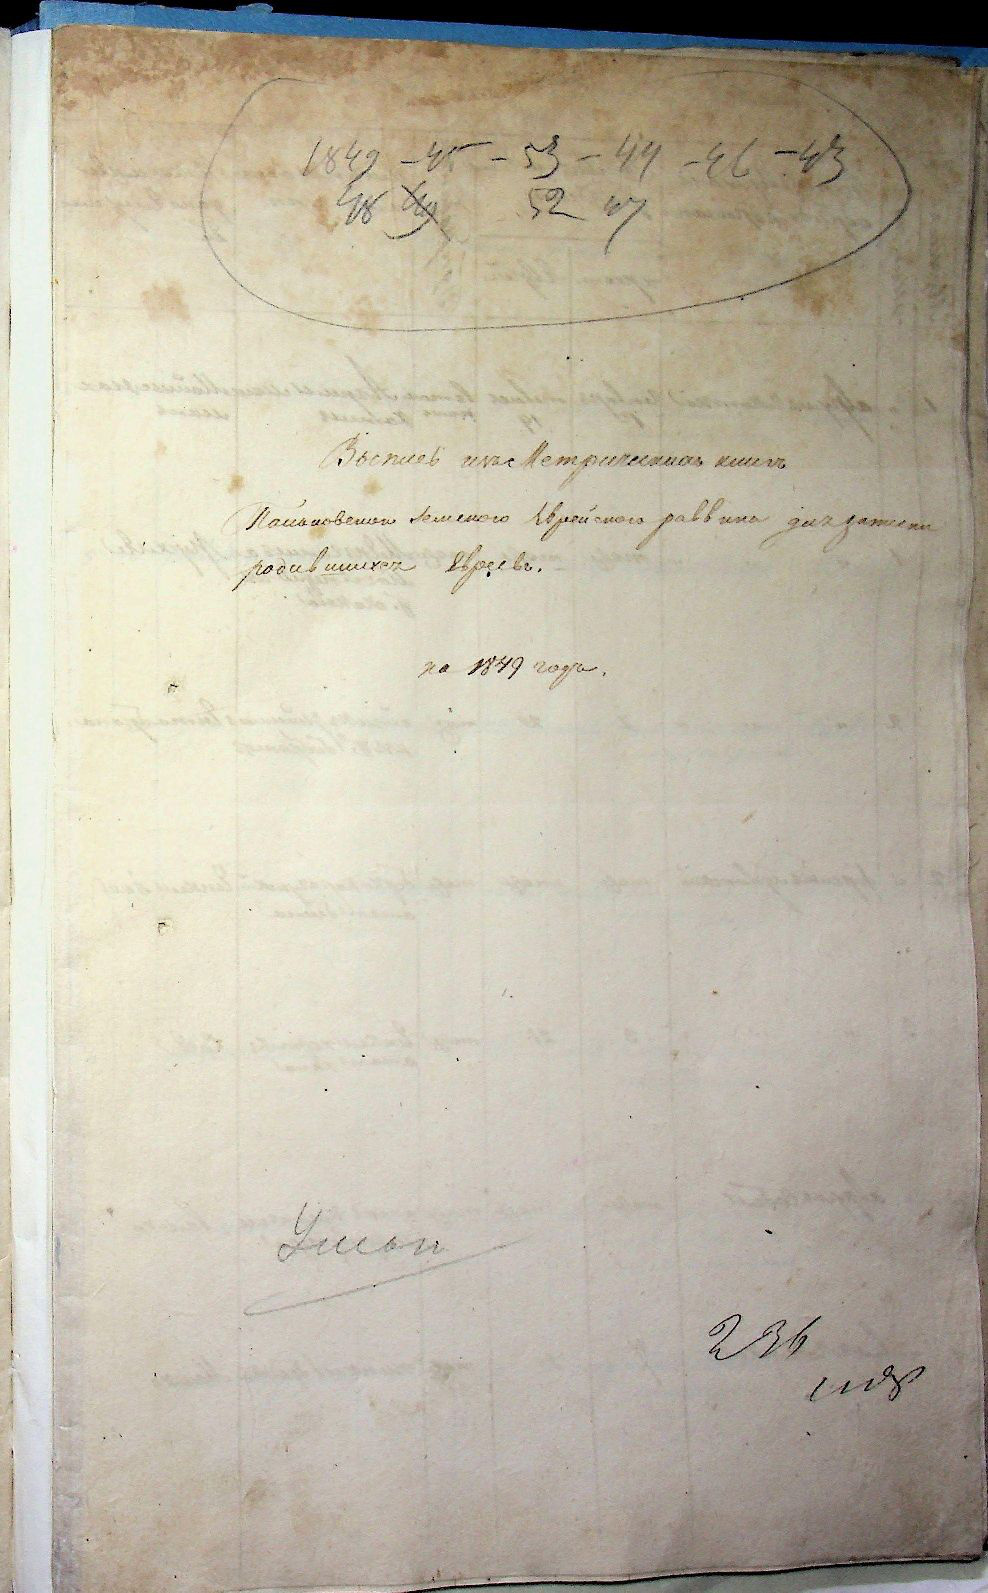 1849 - 45 - 53 - 44 - 46 - 43
48 49 52 47
Выпись изъ Метрическихъ книгъ
земского Еврейского раввина для записки
родившихся Евреевъ.
на 1849 годъ.
Умань
236